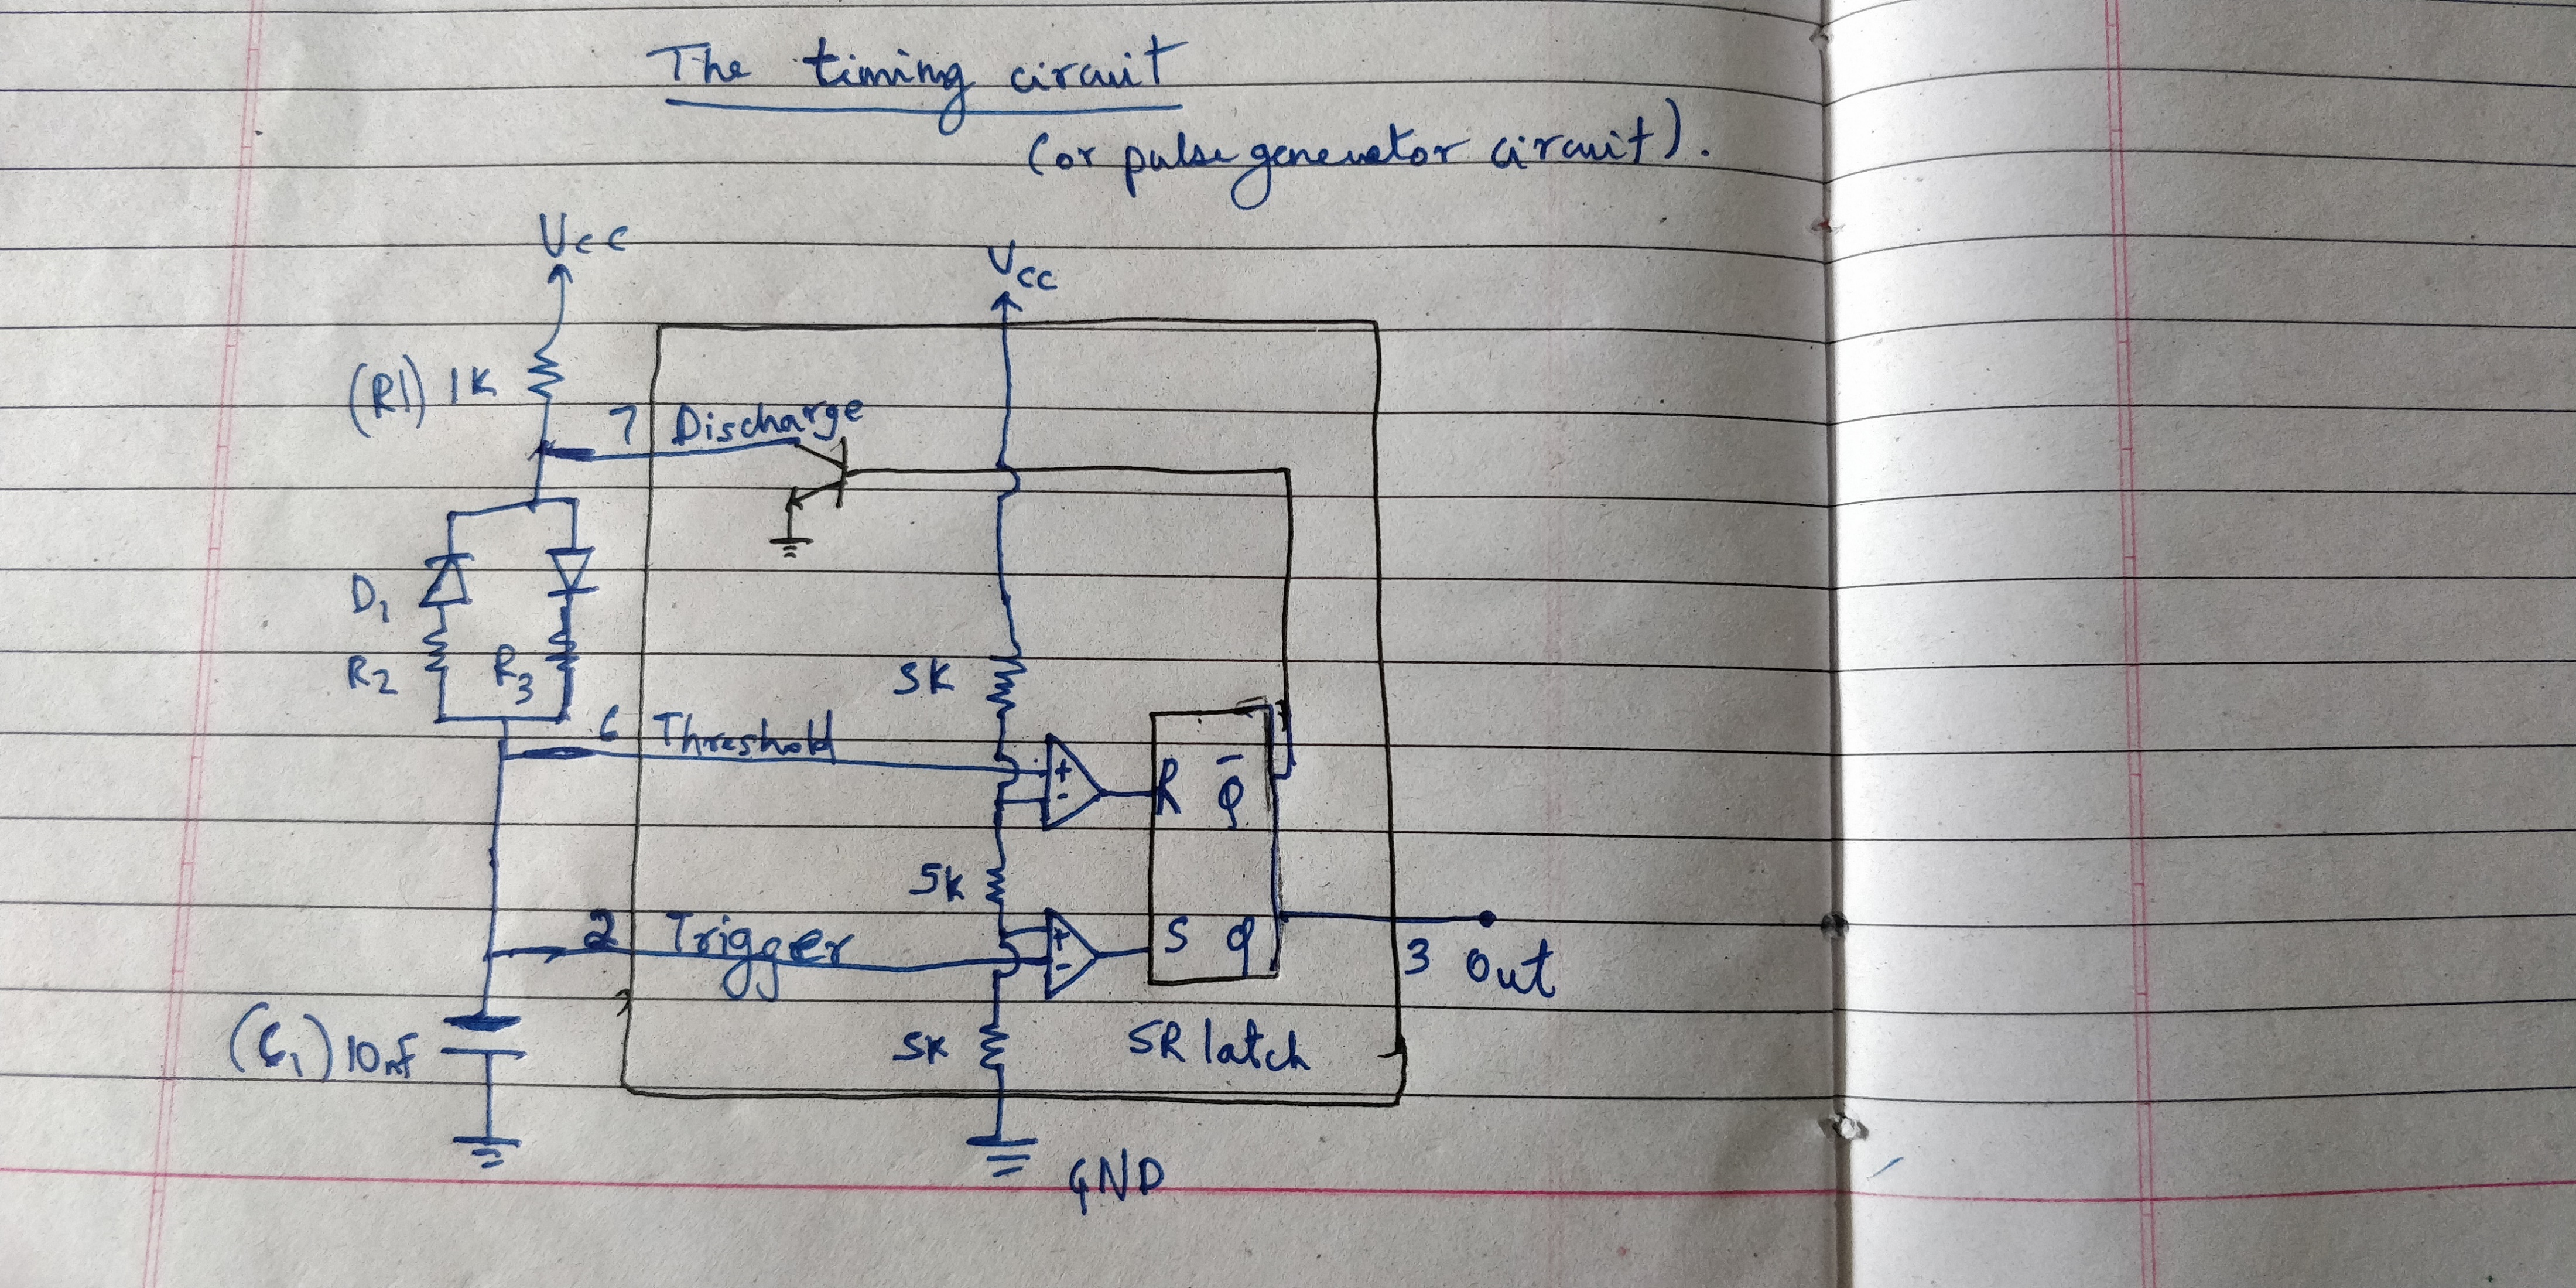 The timing circuit
(or pulse generator circuit).
Vcc
Vcc
(R1) 1K
7 Discharge
D1
R2 R3
5K
6 Threshold
+
-
R Q̄
5K
2 Trigger
+
-
S Q
3 Out
(C1) 10nf
5K
SR latch
GND